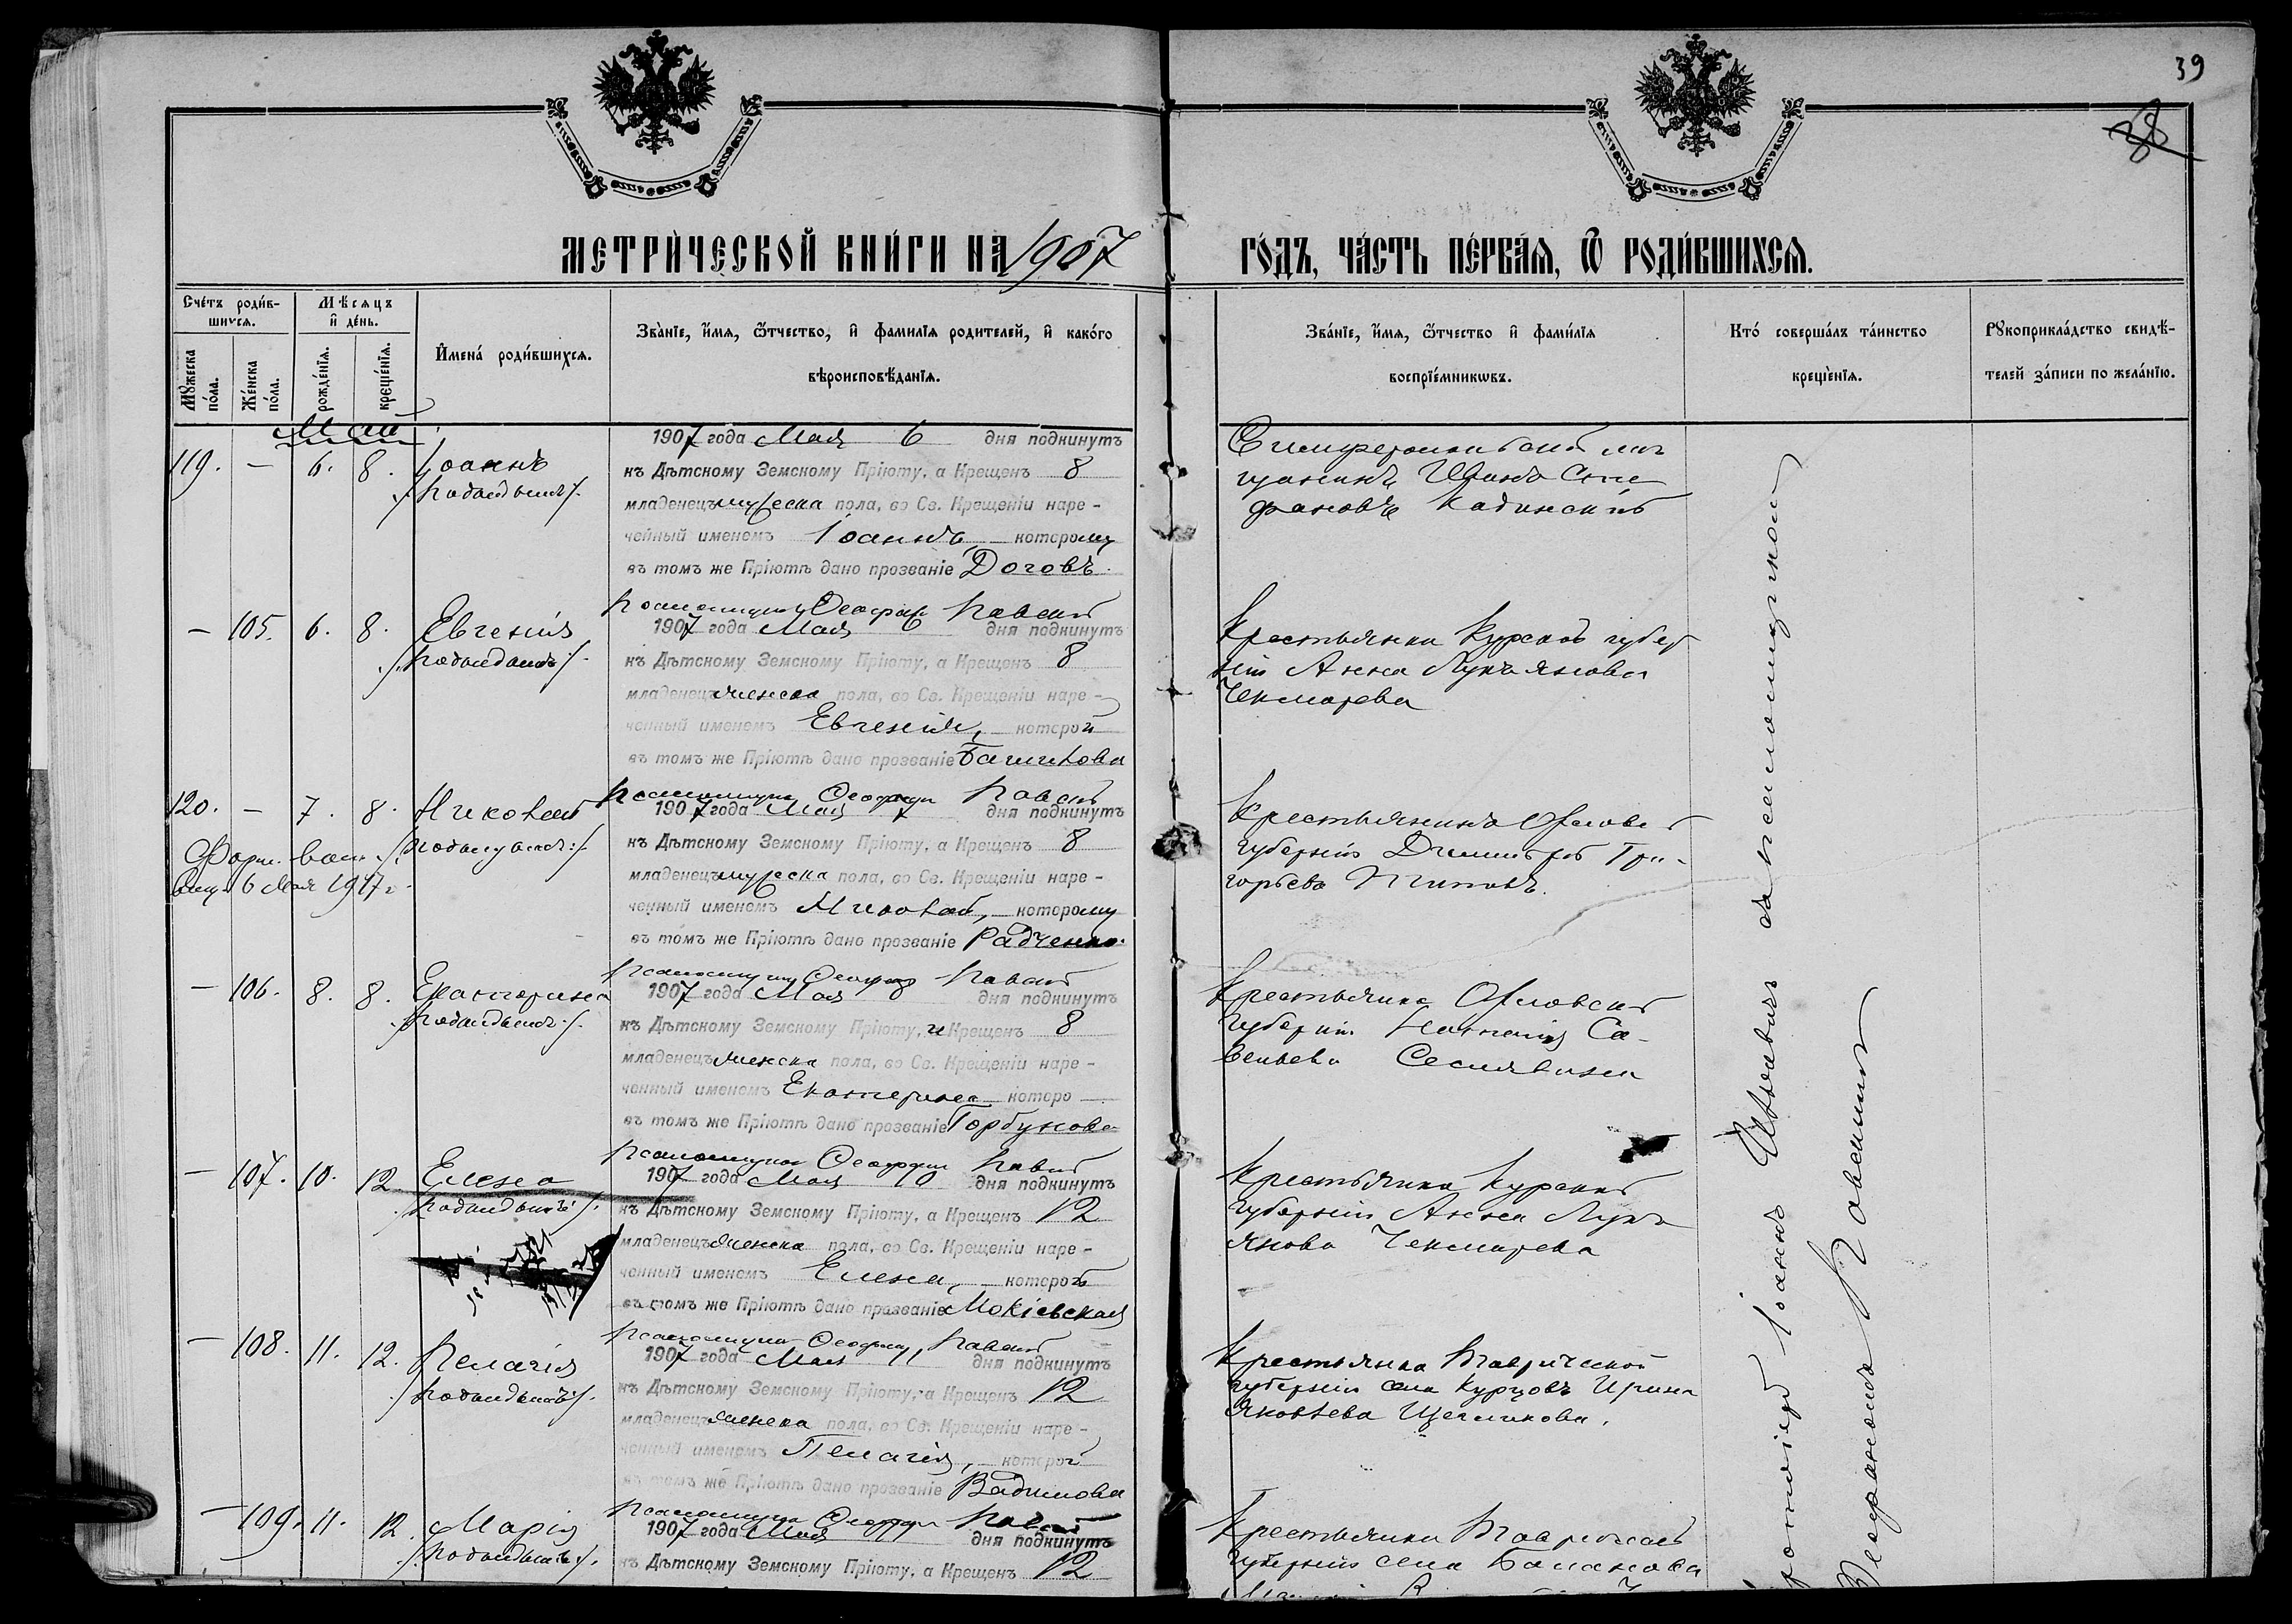 39
38
МЕТРИЧЕСКОЙ КНИГИ НА 1907
ГОДЪ, ЧАСТЬ ПЕРВАЯ, Ѿ РОДИВШИХСЯ.
Счетъ родив-
шихся.
Мѣсяцъ
и день.
Мужеска
пола.
Женска
пола.
рожденїя.
крещенїя.
Имена родившихся.
Званїе, имя, ѿтчество, и фамилїя родителей, и какого
вѣроисповѣданїя.
Званїе, имя, ѿтчество и фамилїя
воспрїемниковъ.
Кто совершалъ таинство
крещенїя.
Рукоприкладство свидѣ-
телей записи по желанїю.
Май
119. – 6. 8. Іоаннъ
1907 года Мая 6 дня подкинутъ
къ Дѣтскому Земскому Пріюту, а Крещенъ 8
младенецъ мужеска пола, во Св. Крещеніи наре-
ченный именемъ Іоаннъ которому
въ томъ же Пріютѣ дано прозваніе Договъ.
Симферопольскій мѣ
щанинъ Иванъ Сте
фановъ Кадинскій
– 105. 6. 8. Евгенія
Псаломщикъ Ѳеофанъ
1907 года Мая 6 дня подкинутъ
къ Дѣтскому Земскому Пріюту, а Крещенъ 8
младенецъ женска пола, во Св. Крещеніи наре-
ченный именемъ Евгенія, которой
въ томъ же Пріютѣ дано прозваніе
Крестьянка Курской губер
ніи Анна Лукъянова
Чекмарева
120. – 7. 8. Николай
6 Мая 1917 г.
Псаломщикъ Ѳеофанъ
1907 года Мая 7 дня подкинутъ
къ Дѣтскому Земскому Пріюту, а Крещенъ 8
младенецъ мужеска пола, во Св. Крещеніи наре-
ченный именемъ Николай, которому
въ томъ же Пріютѣ дано прозваніе Радченко.
Крестьянинъ Орловской
губерніи Димитрій Гри-
горьевъ
– 106. 8. 8. Екатерина
Псаломщикъ Ѳеофанъ
1907 года Мая 8 дня подкинутъ
къ Дѣтскому Земскому Пріюту, и Крещенъ 8
младенецъ женска пола, во Св. Крещеніи наре-
ченный именемъ Екатерина которо
въ томъ же Пріютѣ дано прозваніе Горбунова
Крестьянка Орловской
губерніи Наталія Са-
вельева
– 107. 10. 12 Елена
Псаломщикъ Ѳеофанъ
1907 года Мая 10 дня подкинутъ
къ Дѣтскому Земскому Пріюту, а Крещенъ 12
младенецъ женска пола, во Св. Крещеніи наре-
ченный именемъ Елена, которой
въ томъ же Пріютѣ дано прозваніе Мокіевская
Крестьянка Курской
губерніи Анна Лукъ
янова Чекмарева
– 108. 11. 12. Пелагія
Псаломщикъ Ѳеофанъ
1907 года Мая 11 дня подкинутъ
къ Дѣтскому Земскому Пріюту, а Крещенъ 12
младенецъ женска пола, во Св. Крещеніи наре-
ченный именемъ Пелагія, которой
въ томъ же Пріютѣ дано прозваніе Вадимова
Крестьянка Таврической
губерніи села Курцовъ Ирина
Яковлева
– 109. 11. 12. Марія
Псаломщикъ Ѳеофанъ
1907 года Мая дня подкинутъ
къ Дѣтскому Земскому Пріюту, а Крещенъ 12
Крестьянка Таврической
губерніи села
Іоаннъ съ псаломщикомъ
Ѳеофаномъ